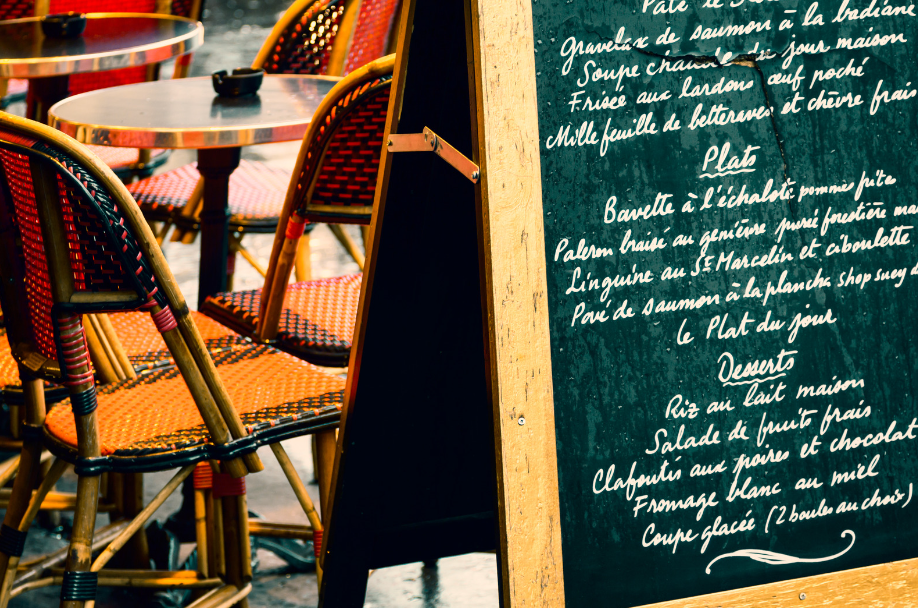 Gravelax de saumon à la badiane
Soupe chaude du jour maison
Frisée aux lardons œuf poché
Mille feuille de betteraves et chèvre frais
Plats
Bavette à l'échalote pommes frite
Paleron braisé au genièvre purée forestière
Linguine au St Marcelin et ciboulette
Pavé de saumon à la plancha shop suey
le Plat du jour
Desserts
Riz au lait maison
Salade de fruits frais
Clafoutis aux poires et chocolat
Fromage blanc au miel
Coupe glacée (2 boules au choix)